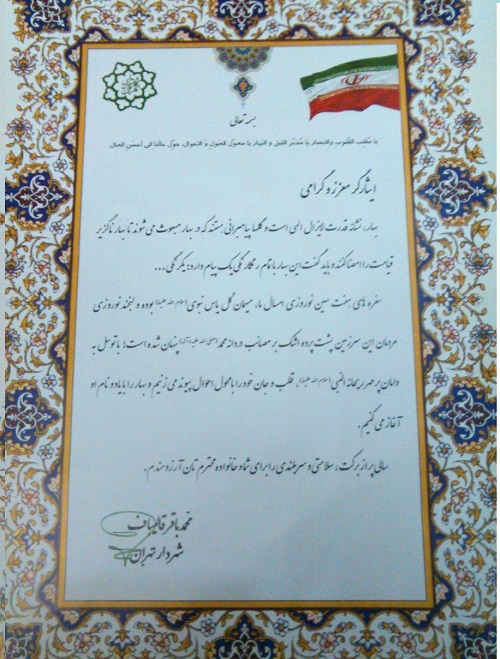 بسمه تعالی
یا مقلب القلوب والابصار یا مدبر اللیل و النهار یا محول الحول و الاحوال حول حالنا الی احسن الحال
ایثارگر معزز و گرامی
بهار، نشانه قدرت لایزال الهی است و گلها پیامبرانی هستند که در بهار مبعوث می شوند تا بهار ناگزیر
قیامت را امضا کننده باید گفت این بهار با تمام رنگارنگی یک پیام دارد: یکرنگی...
سفره های هفت سین نوروزی امسال ما، میهمان گل یاس نبوی (سلام الله علیها) بوده و لبخند نوروزی
مردمان این سرزمین پشت پرده اشک بر مصائب دردانه محمد (صلی الله علیه و آله) پنهان شده است؛ با توسل به
دامان پر مهر ریحانه النبی (سلام الله علیها)، قلب و جان خود را با محول احوال پیوند می زنیم و بهار را با یاد و نام او
آغاز می کنیم.
سالی پر از برکت، سلامتی و سربلندی را برای شما و خانواده محترم تان آرزومندم.
محمد باقر قالیباف
شهردار تهران